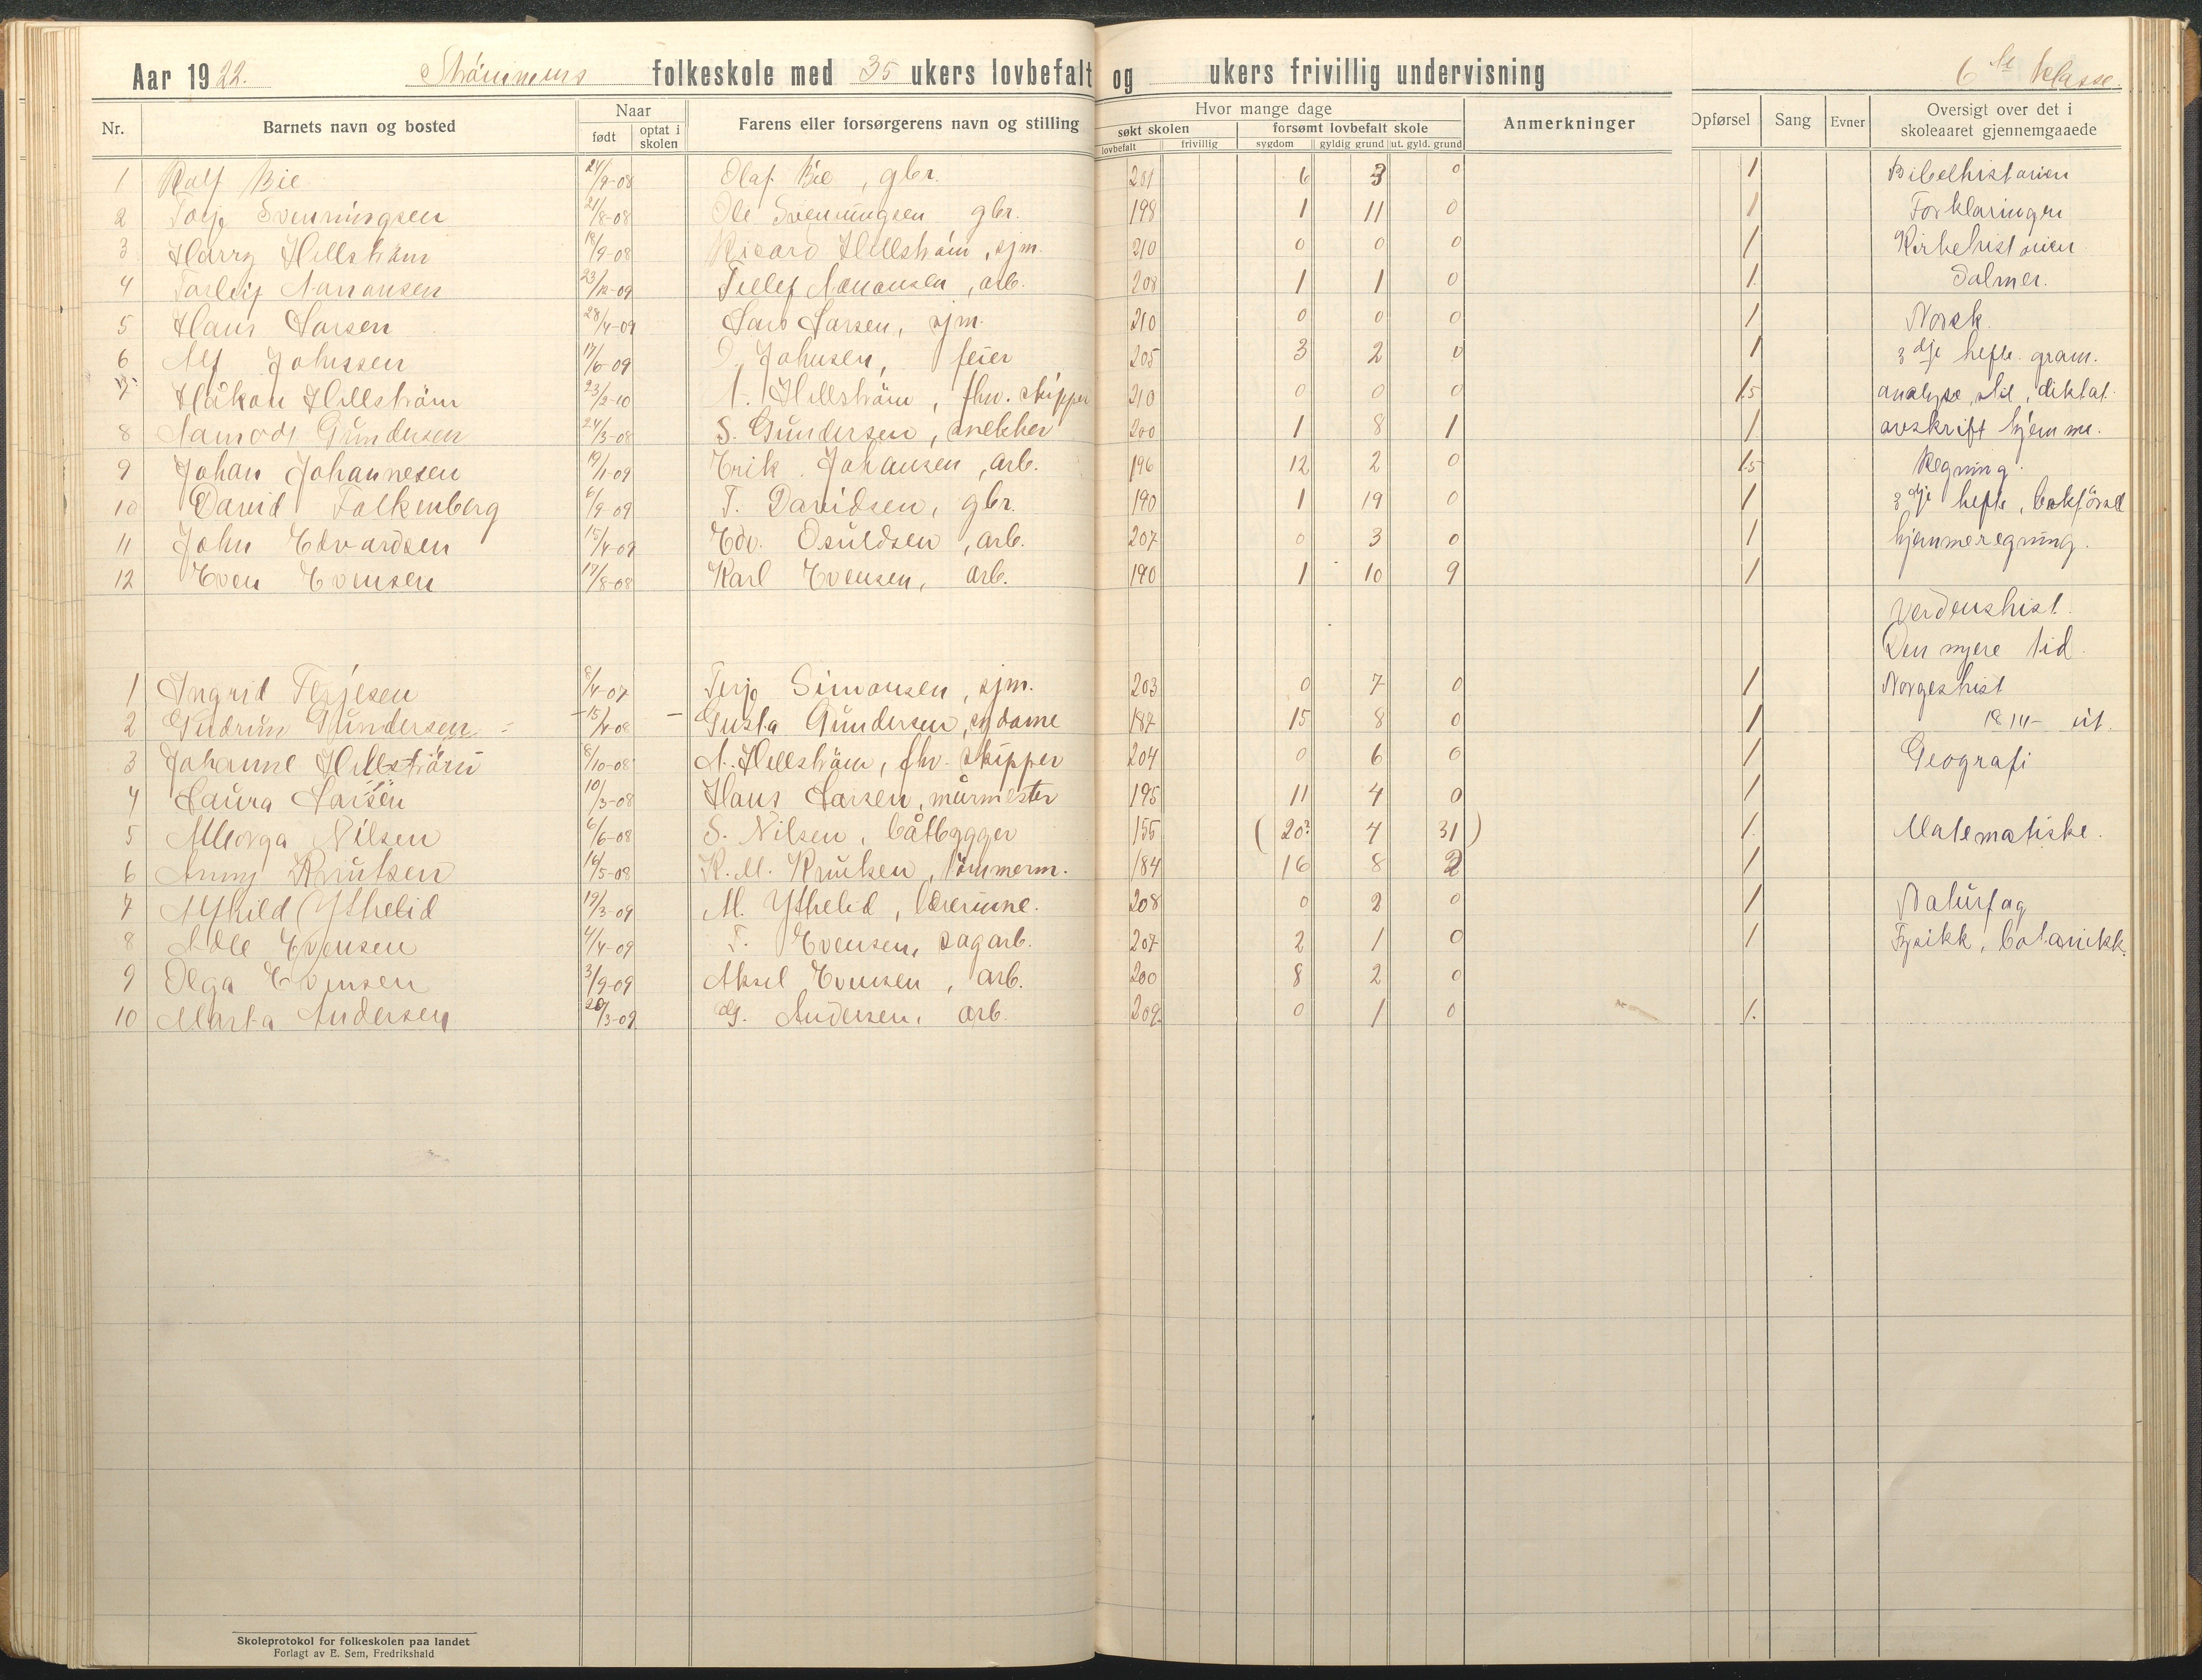 Aar 1922. Strömmens folkeskole med 35 ukers lovbefalt og ukers frivillig undervisning 6te klasse.
Nr. Barnets navn og bosted Naar født optat i skolen Farens eller forsørgerens navn og stilling Hvor mange dage søkt skolen lovbefalt frivillig forsømt lovbefalt skole sygdom gyldig grund ut. gyld. grund Anmerkninger Opførsel Sang Evner Oversigt over det i skoleaaret gjennemgaaede
1 Rolf Bie 24/9-08 Olaf Bie, gbr. 201 6 3 0 1 Bibelhistorien
2 Terje Svenningsen 21/8-08 Ole Svenningsen gbr. 198 1 11 0 1 Forklaringen
3 Harry Hellström 18/9-08 Ricard Hellström, sjm. 210 0 0 0 1 Kirkehistorien
4 Torleif Aanonsen 23/12-09 Tellef Aanonsen, arb. 208 1 1 0 1. Salmer.
5 Hans Larsen 28/4-09 Lars Larsen, sjm. 210 0 0 0 1 Norsk.
6 Alf Johnsen 17/6-09 Johnsen, feier 205 3 2 0 1 3dje hefte gram.
7 Håkon Hellström 23/2-10 A. Hellström, fhv. skipper 210 0 0 0 1.5 analyse, stil, diktat.
8 Aamodt Gundersen 24/3-08 S. Gundersen, snekker 200 1 8 1 1 avskrift hjemme.
9 Johan Johannesen 19/1-09 Erik Johansen, arb. 196 12 2 0 1.5 Regning.
10 David Falkenberg 6/9-09 T. Davidsen, gbr. 190 1 19 0 1 3dje hefte, bokförsel
11 John Edvardsen 15/4-09 Edv. Osuldsen, arb. 207 0 3 0 1 hjemmeregning.
12 Even Evensen 17/8-08 Karl Evensen, arb. 190 1 10 9 1
Verdenshist.
Den nyere tid.
1 Ingrid Terjesen 8/4-07 Terje Simonsen, sjm. 203 0 7 0 1 Norgeshist
2 Gudrun Gundersen - 15/4-08 - Gusta Gundersen, sydame 187 15 8 0 1 1814- ut.
3 Johanne Hellström 8/10-08 A. Hellström, fhv. skipper 204 0 6 0 1 Geografi
4 Laura Larsen 10/3-08 Hans Larsen, murmester 195 11 4 0 1
5 Nilsen 6/6-08 S. Nilsen, båtbygger 155 (20? 4 31) 1. Matematiske.
6 Anny Knutsen 16/5-08 K. M. Knutsen, tömmerm. 184 16 8 2 1
7 Alfhild Ythelid 19/3-09 M. Ythelid, lærerinne. 208 0 2 0 1 Naturfag
8 Adle Evensen 4/4-09 T. Evensen, sagarb. 207 2 1 0 1 Fysikk, botanikk.
9 Olga Evensen 3/9-09 Aksel Evensen, arb. 200 8 2 0
10 Marta Andersen 20/3-09 G. Andersen, arb. 209. 0 1 0 1.
Skoleprotokol for folkeskolen paa landet
Forlagt av E. Sem, Fredrikshald